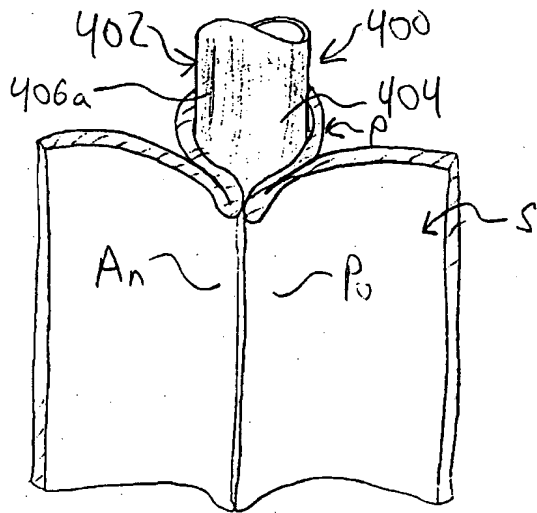 402
400
406a
404
P
S
An
Po